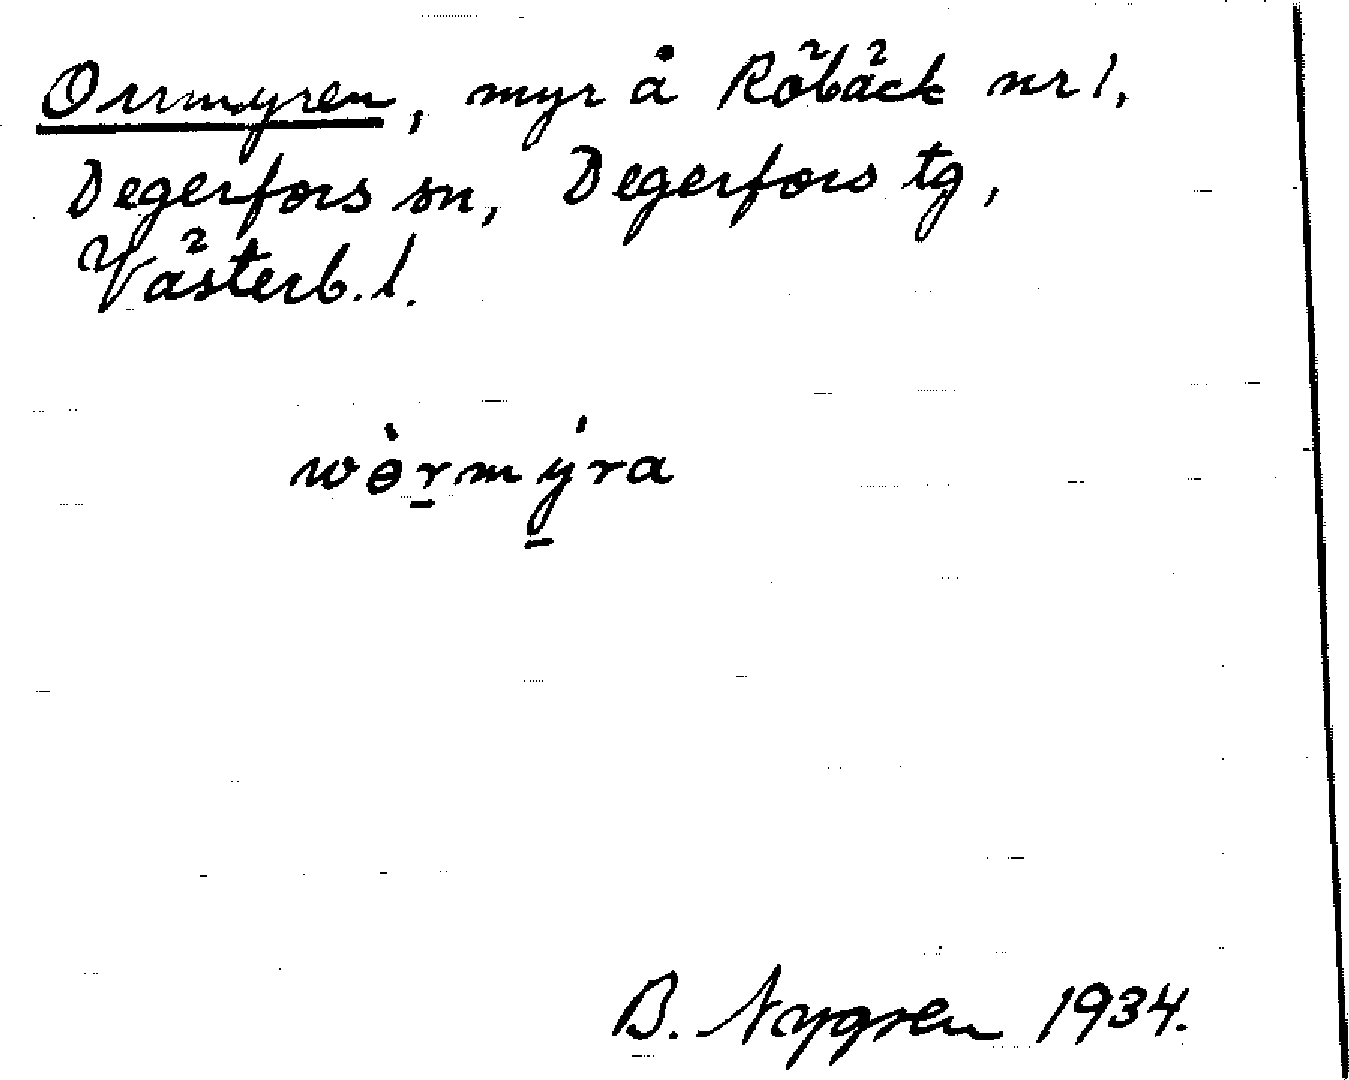 Orrmyren, myr å Röbäck nr 1,
Degerfors sn, Degerfors tg,
Västerb. l.
wɵ̀r̲mý̲ra
B. Nygren 1934.